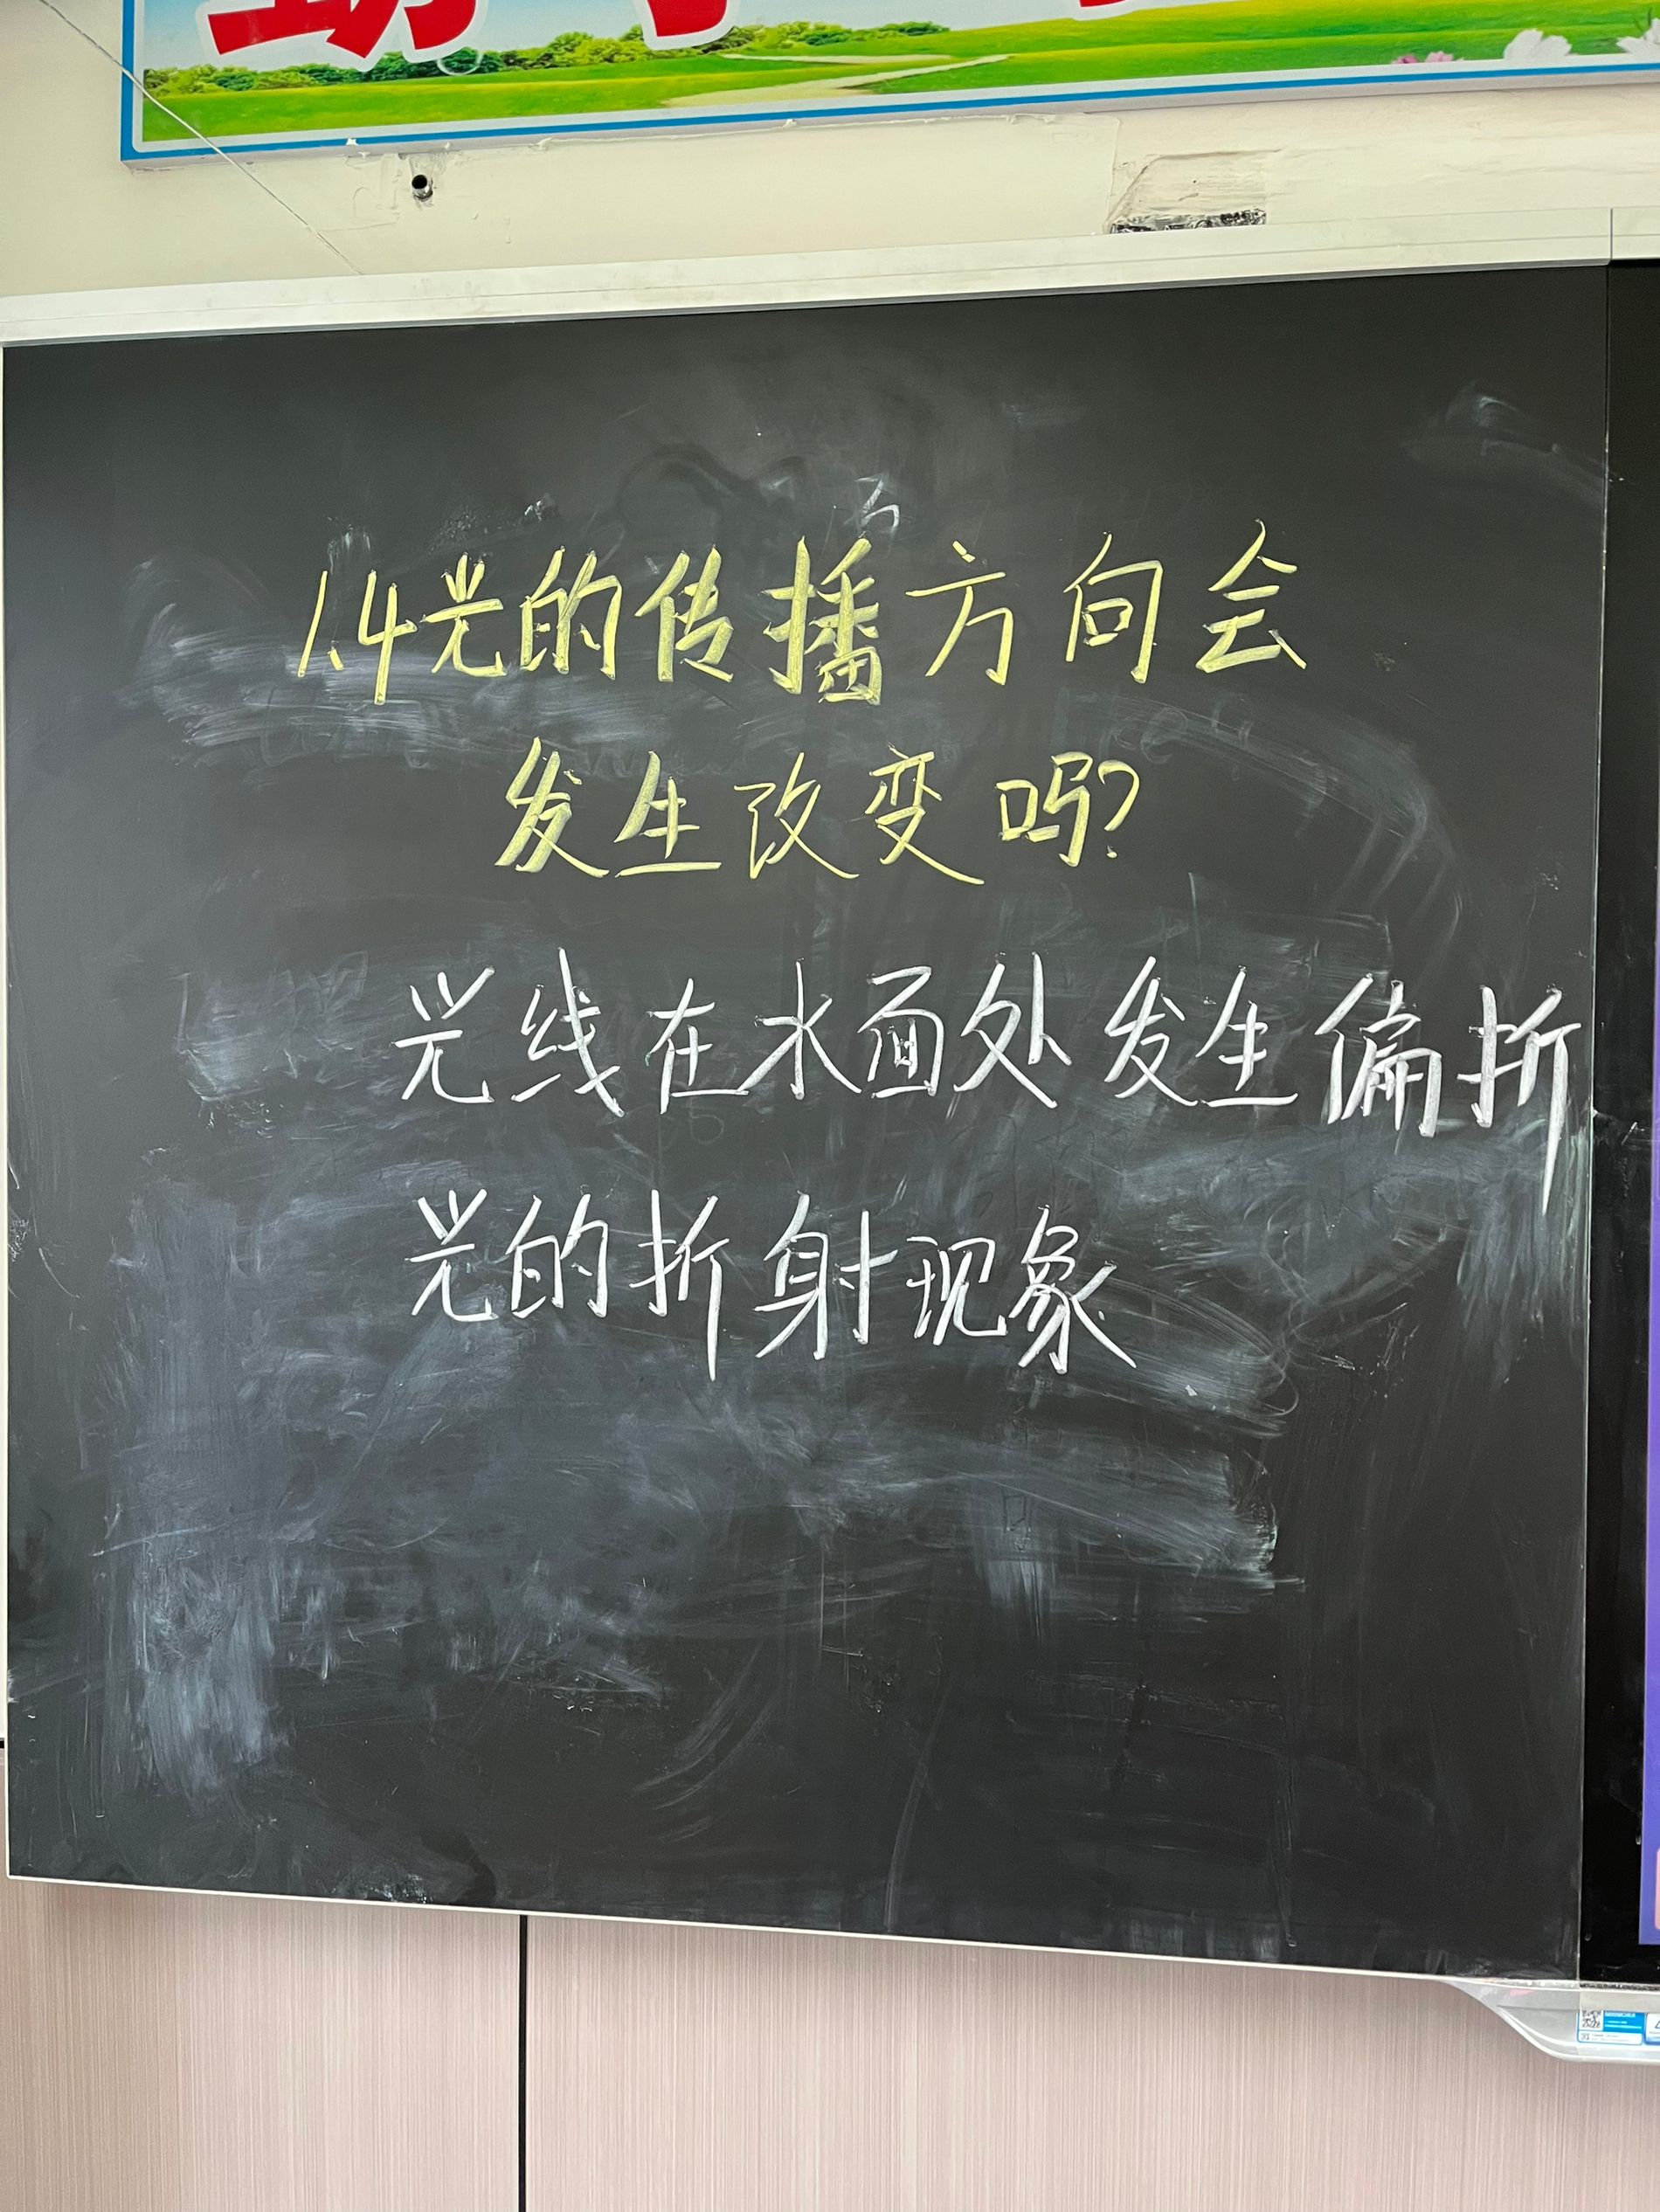 1.4光的传播方向会
发生改变吗?
光线在水面处发生偏折
光的折射现象